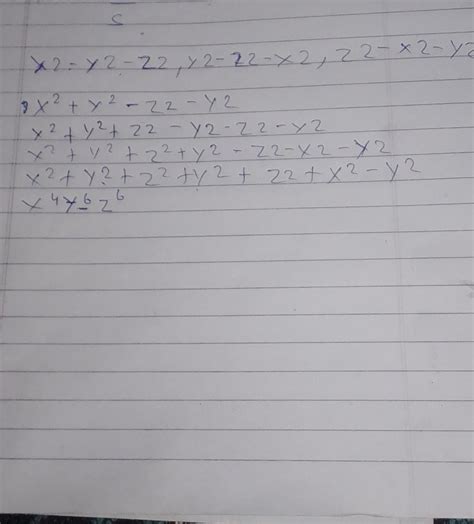 5
x2 - y2 - z2, y2 - z2 - x2, z2 - x2 - y2
x² + y² - z2 - y2
x² + y² + z2 - y2 - z2 - y2
x² + y² + z² + y² - z2 - x2 - y2
x² + y² + z² + y² + z2 + x² - y²
x⁴ y⁶ z⁶